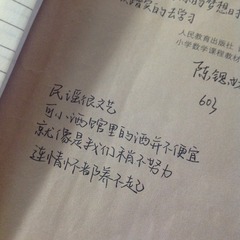 的梦想
踏实的去学习
人民教育出版社
小学数学课程教材
陈锶
603
民谣很文艺
可小酒馆里的酒并不便宜
就像是我们稍不努力
连情怀都养不起